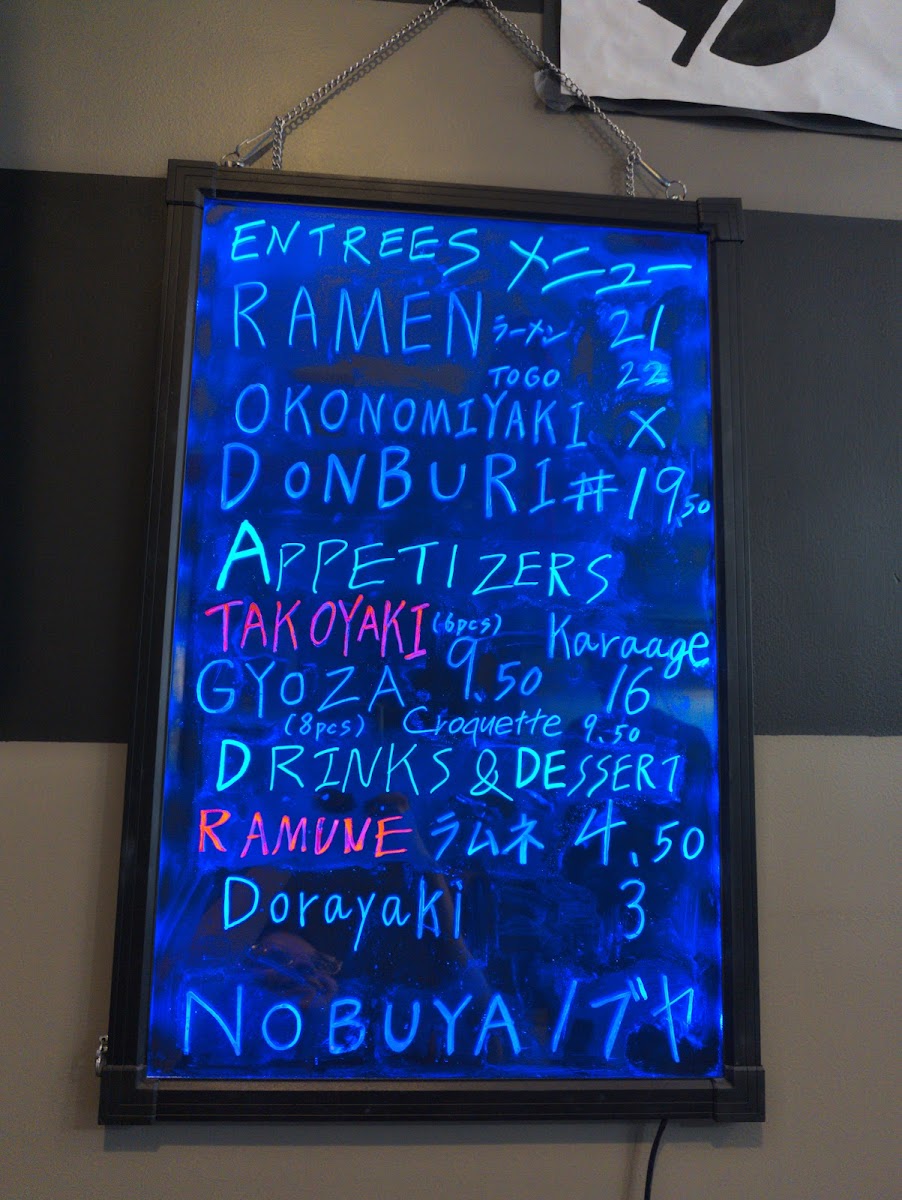 ENTREES メニュー
RAMEN ラーメン 21
TOGO 22
OKONOMIYAKI X
DONBURI 丼 19.50
APPETIZERS
TAKOYAKI (6pcs) Karaage
GYOZA 9.50 16
(8pcs) Croquette 9.50
DRINKS & DESSERT
RAMUNE ラムネ 4.50
Dorayaki 3
NOBUYA ノブヤ